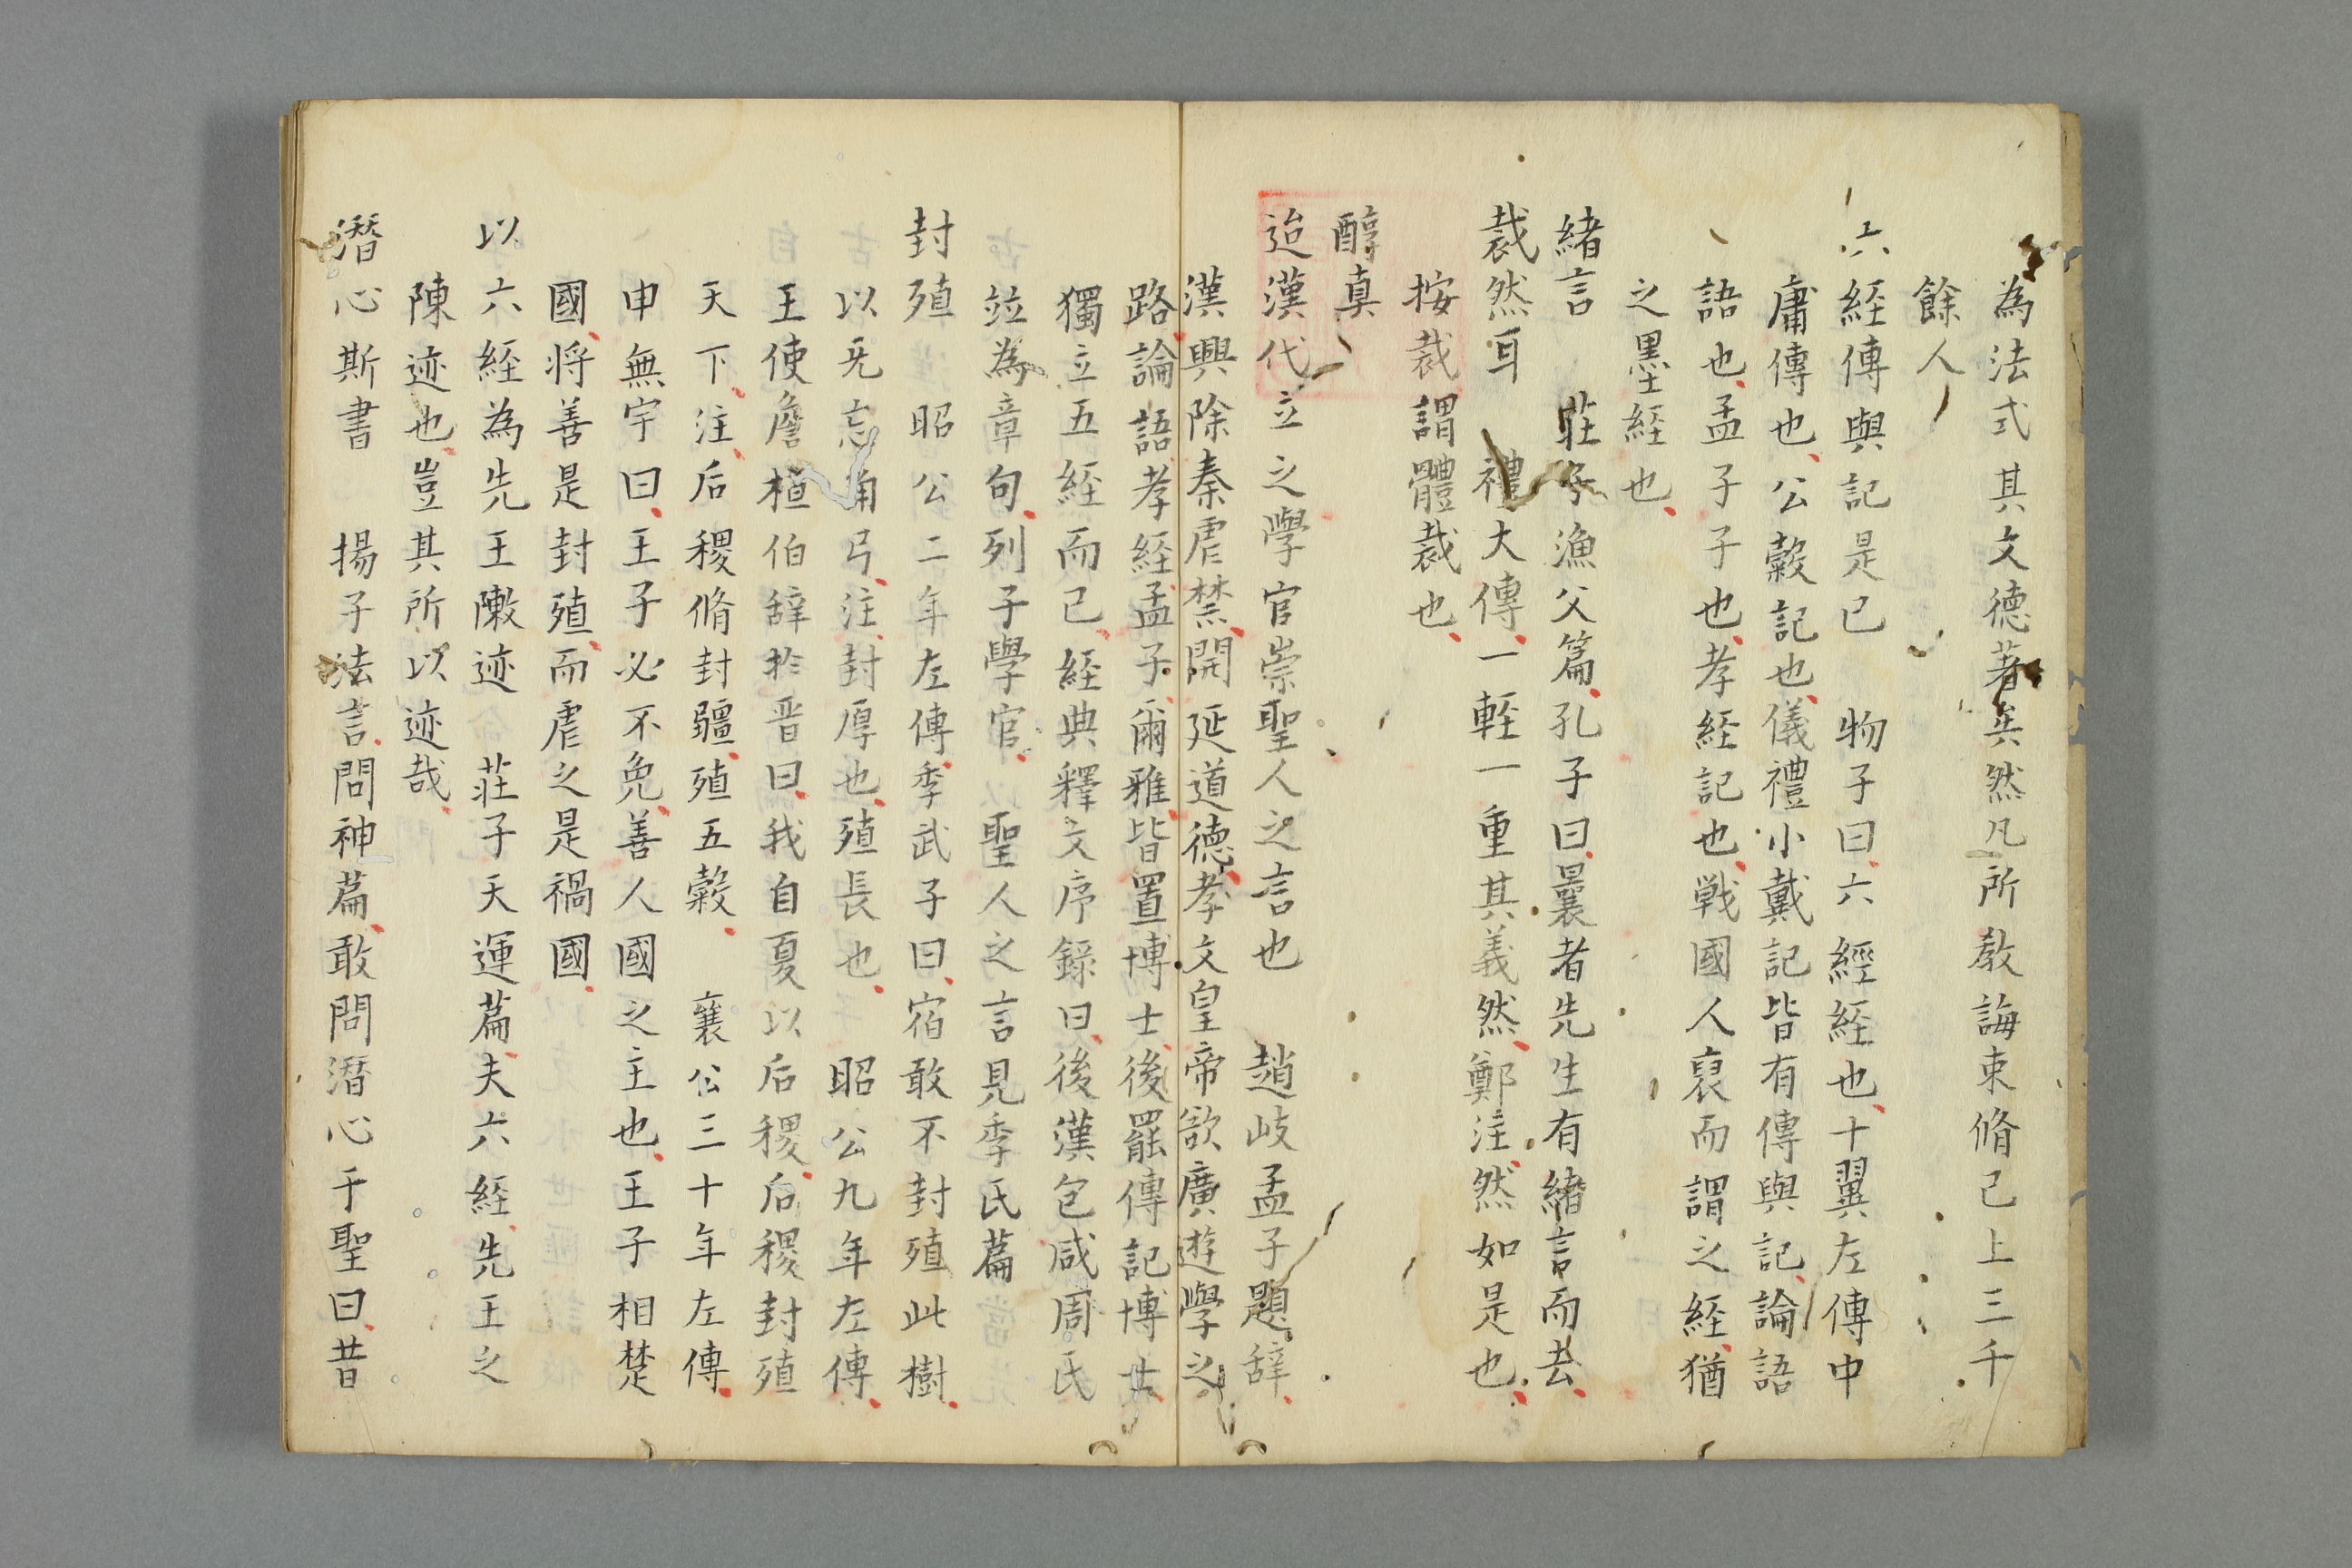 為法式其文德著矣然凡所教誨束脩已上三千
餘人
六経傳與記是已　物子曰六經経也十翼左傳中
庸傳也公穀記也儀禮小戴記皆有傳與記論語
語也孟子子也孝経記也戦國人裒而謂之経猶
之墨経也
緒言　荘子漁父篇孔子曰曩者先生有緒言而去
裁然耳　禮大傳一輕一重其義然鄭注然如是也
按裁謂體裁也
醇真
迨漢代立之學官崇聖人之言也　趙岐孟子題辞
漢興除秦虐禁開延道德孝文皇帝欲廣遊學之
路論語孝経孟子爾雅皆置博士後罷傳記博士
獨立五経而已経典釋文序錄曰後漢包咸周氏
竝為章句列子學官　聖人之言見季氏篇
封殖　昭公二年左傳季武子曰宿敢不封殖此樹
以旡忘角弓注封厚也殖長也　昭公九年左傳
王使詹桓伯辞於晋曰我自夏以后稷后稷封殖
天下注后稷脩封疆殖五穀　襄公三十年左傳
申無宇曰王子必不免善人國之主也王子相楚
國将善是封殖而虐之是禍國
以六経為先王陳迹　荘子天運篇夫六経先王之
陳迹也豈其所以迹哉
潛心斯書　揚子法言問神篇敢問潛心于聖曰昔